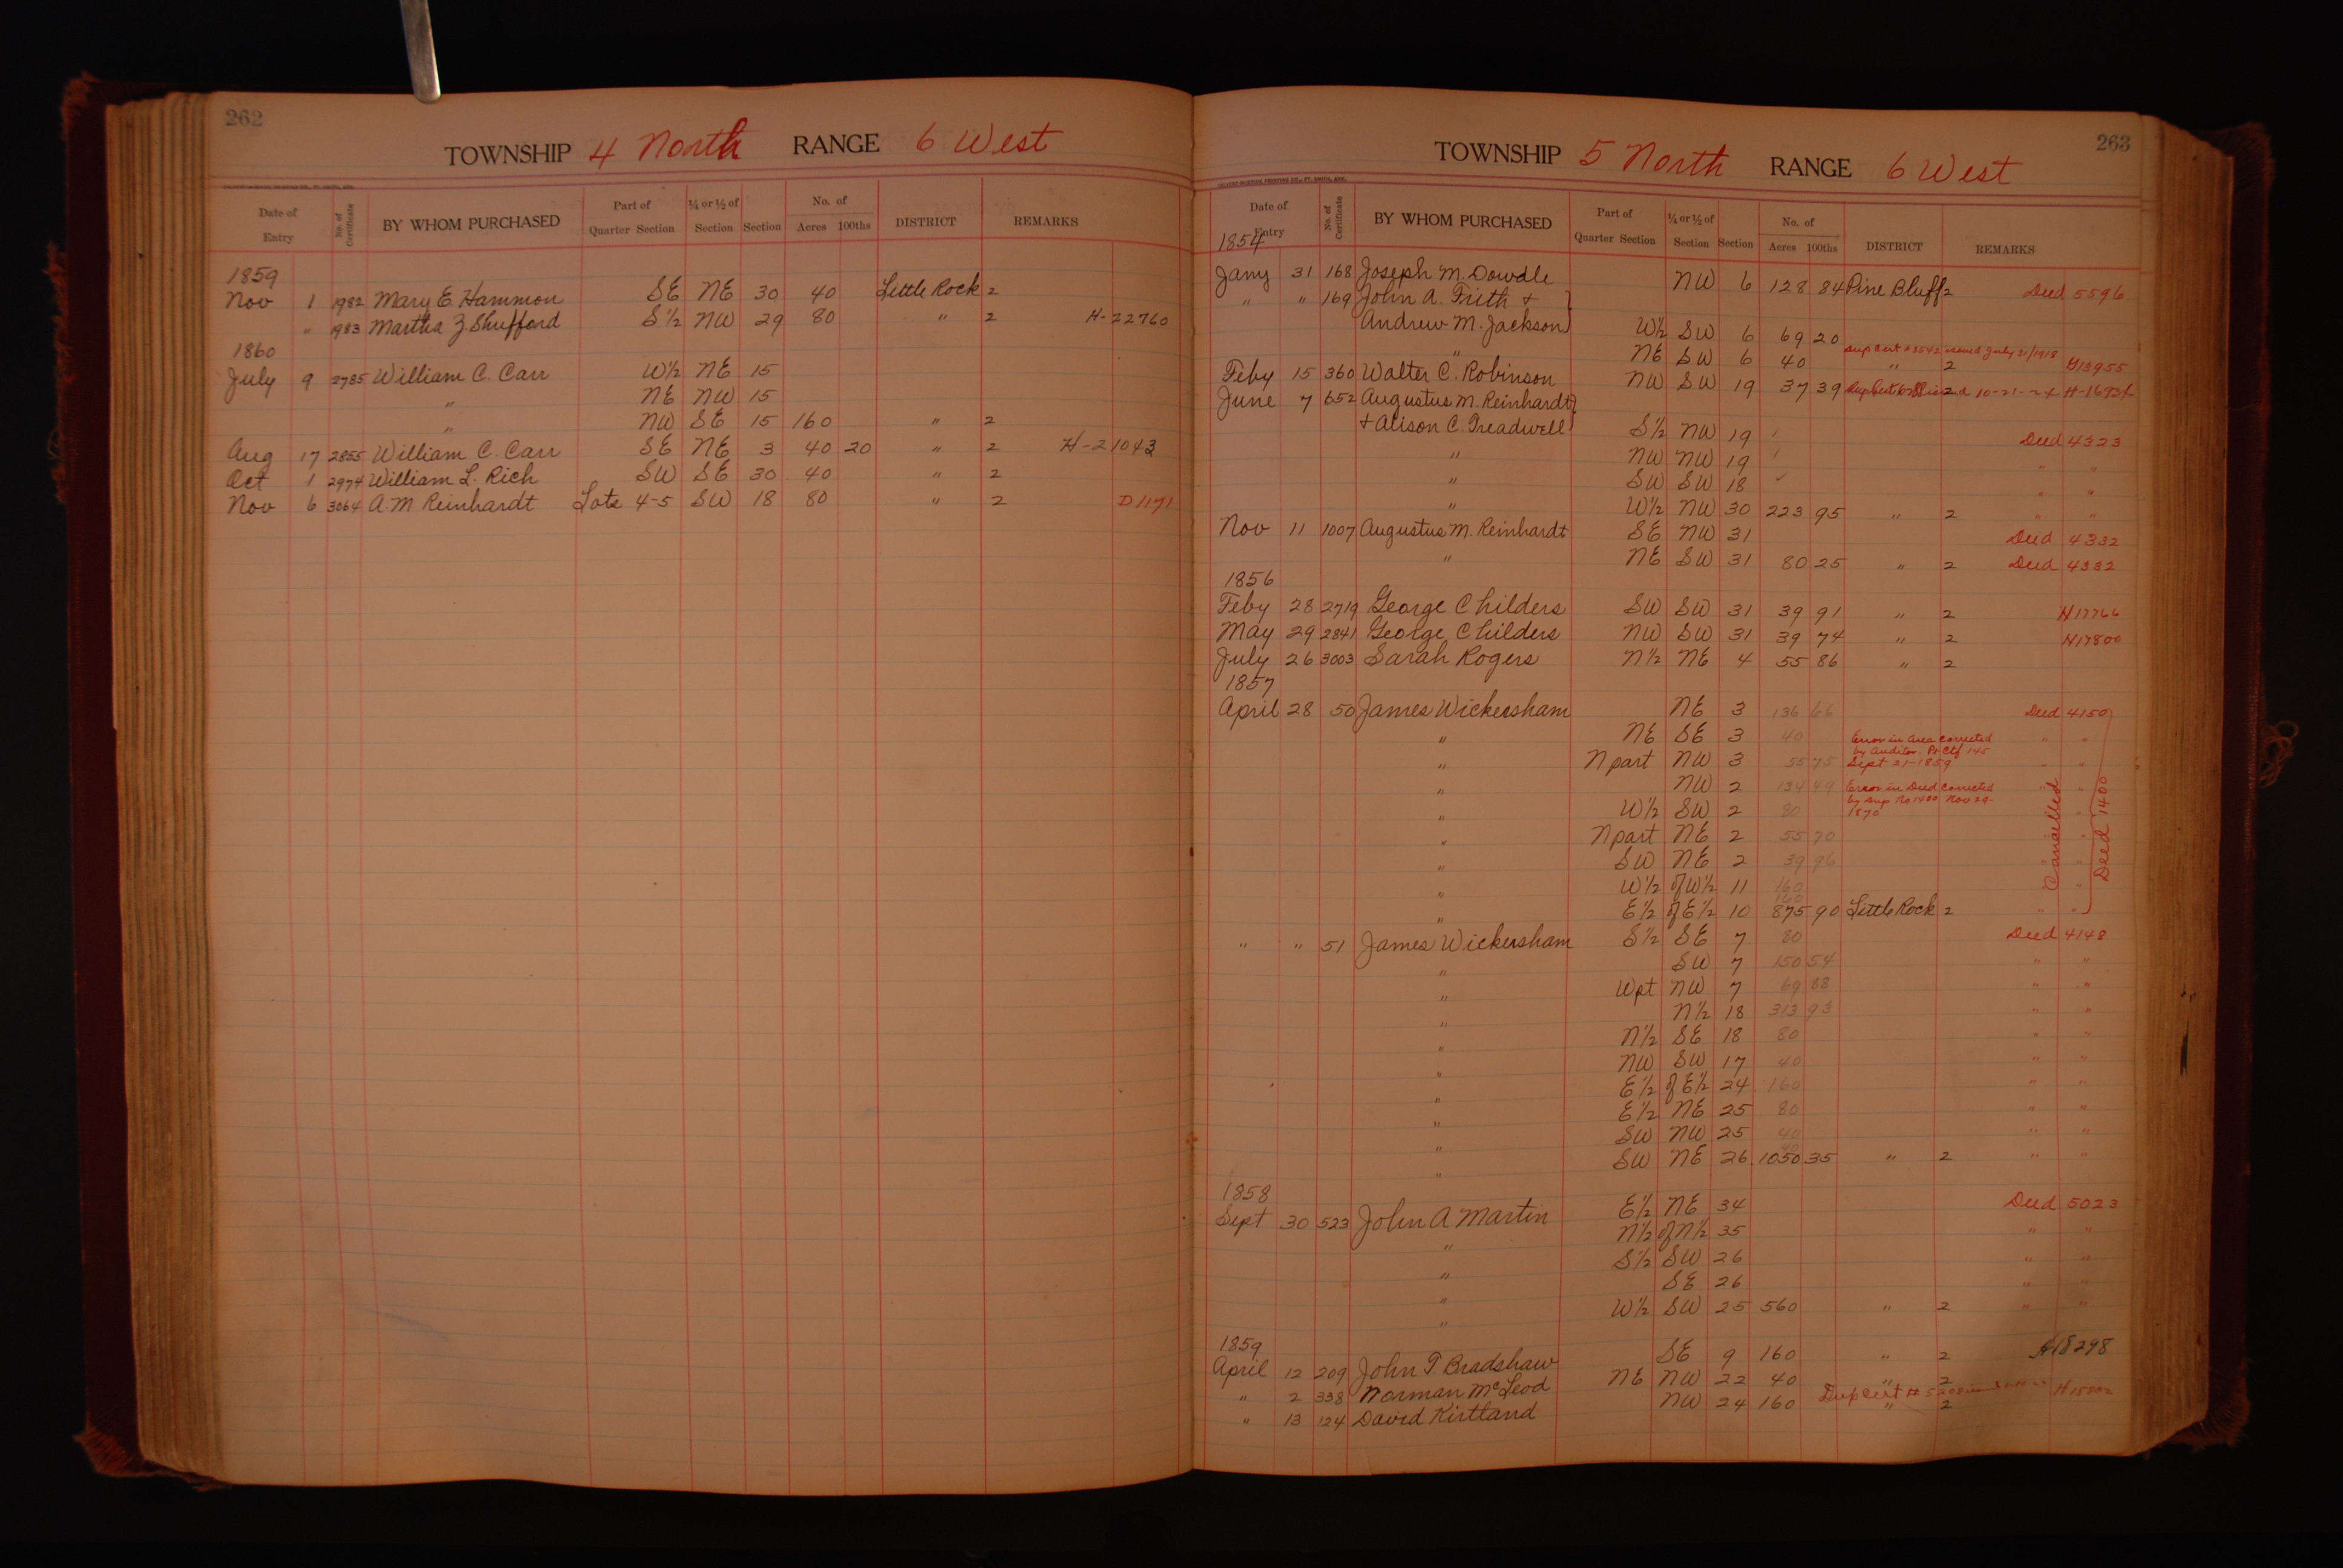 262
TOWNSHIP 4 North RANGE 6 West
Date of Entry No. of Certificate BY WHOM PURCHASED Part of Quarter Section ¼ or ½ of Section Section No. of Acres 100ths DISTRICT REMARKS
1859
Nov 1 1982 Mary E. Hammon SE NE 30 40 Little Rock 2
" 1983 Martha Z. Shufford S½ NW 29 80 " 2 H-22760
1860
July 9 2785 William C. Carr W½ NE 15
" NE NW 15
" NW SE 15 160 " 2
Aug 17 2855 William C. Carr SE NE 3 40 20 " 2 H-21043
Oct 1 2974 William L. Rich SW SE 30 40 " 2
Nov 6 3064 A. M Reinhardt Lots 4-5 SW 18 80 " 2 D1171
263
TOWNSHIP 5 North RANGE 6 West
Date of Entry No. of Certificate BY WHOM PURCHASED Part of Quarter Section ¼ or ½ of Section Section No. of Acres 100ths DISTRICT REMARKS
1854
Jany 31 168 Joseph M. Dowdle NW 6 128 84 Pine Bluff 2 Deed 5596
" " 169 John A. Frith +
Andrew M. Jackson W½ SW 6 69 20
" NE SW 6 40 " 2 H13955
Sup Cert #3542 issued July 31/1918
Feby 15 360 Walter C. Robinson NW SW 19 37 39 2 10-21-24
June 7 652 Augustus M. Reinhardt
+ Alison C. Treadwell S½ NW 19 Deed 4323
" NW NW 19 " "
" SW SW 18 " "
" W½ NW 30 223 95 " 2 " "
Nov 11 1007 Augustus M. Reinhardt SE NW 31 Deed 4332
" NE SW 31 80 25 " 2 Deed 4332
1856
Feby 28 2719 George Childers SW SW 31 39 91 " 2 H17766
May 29 2841 George Childers NW SW 31 39 74 " 2 H17800
July 26 3003 Sarah Rogers N½ NE 4 55 86 " 2
1857
April 28 50 James Wickersham NE 3 136 66 Deed 4150
" NE SE 3 40 " "
Error in Area corrected
by Auditor. Pr Ctf 145
Sept 21-1859
" N part NW 3 55 75 " "
" NW 2 134 49 " "
Error in Deed corrected
by sup No 1400 Nov 29-
1870
" W½ SW 2 80 "
" N part NE 2 55 70 "
" SW NE 2 39 96 " "
" W½ of W½ 11 160 "
" E½ of E½ 10 160 875 90 Little Rock 2 " "
Cancelled
Deed 1400
" " 51 James Wickersham S½ SE 7 80 Deed 4148
" SW 7 150 54 " "
" Wpt NW 7 69 88 " "
" N½ 18 313 93 " "
" N½ SE 18 80 " "
" NW SW 17 40 " "
" E½ of E½ 24 160 " "
" E½ NE 25 80 " "
" SW NW 25 40 " "
" SW NE 26 1050 35 " 2 " "
1858
Sept 30 523 John A Martin E½ NE 34 Deed 5023
" N½ of N½ 35 " "
" S½ SW 26 " "
" SE 26 " "
" W½ SW 25 560 " 2 " "
1859
April 12 209 John T Bradshaw SE 9 160 " 2 H18298
" 2 338 Norman McLeod NE NW 22 40 " 2
" 13 124 David Kirtland NW 24 160 " 2
Dup Cert #